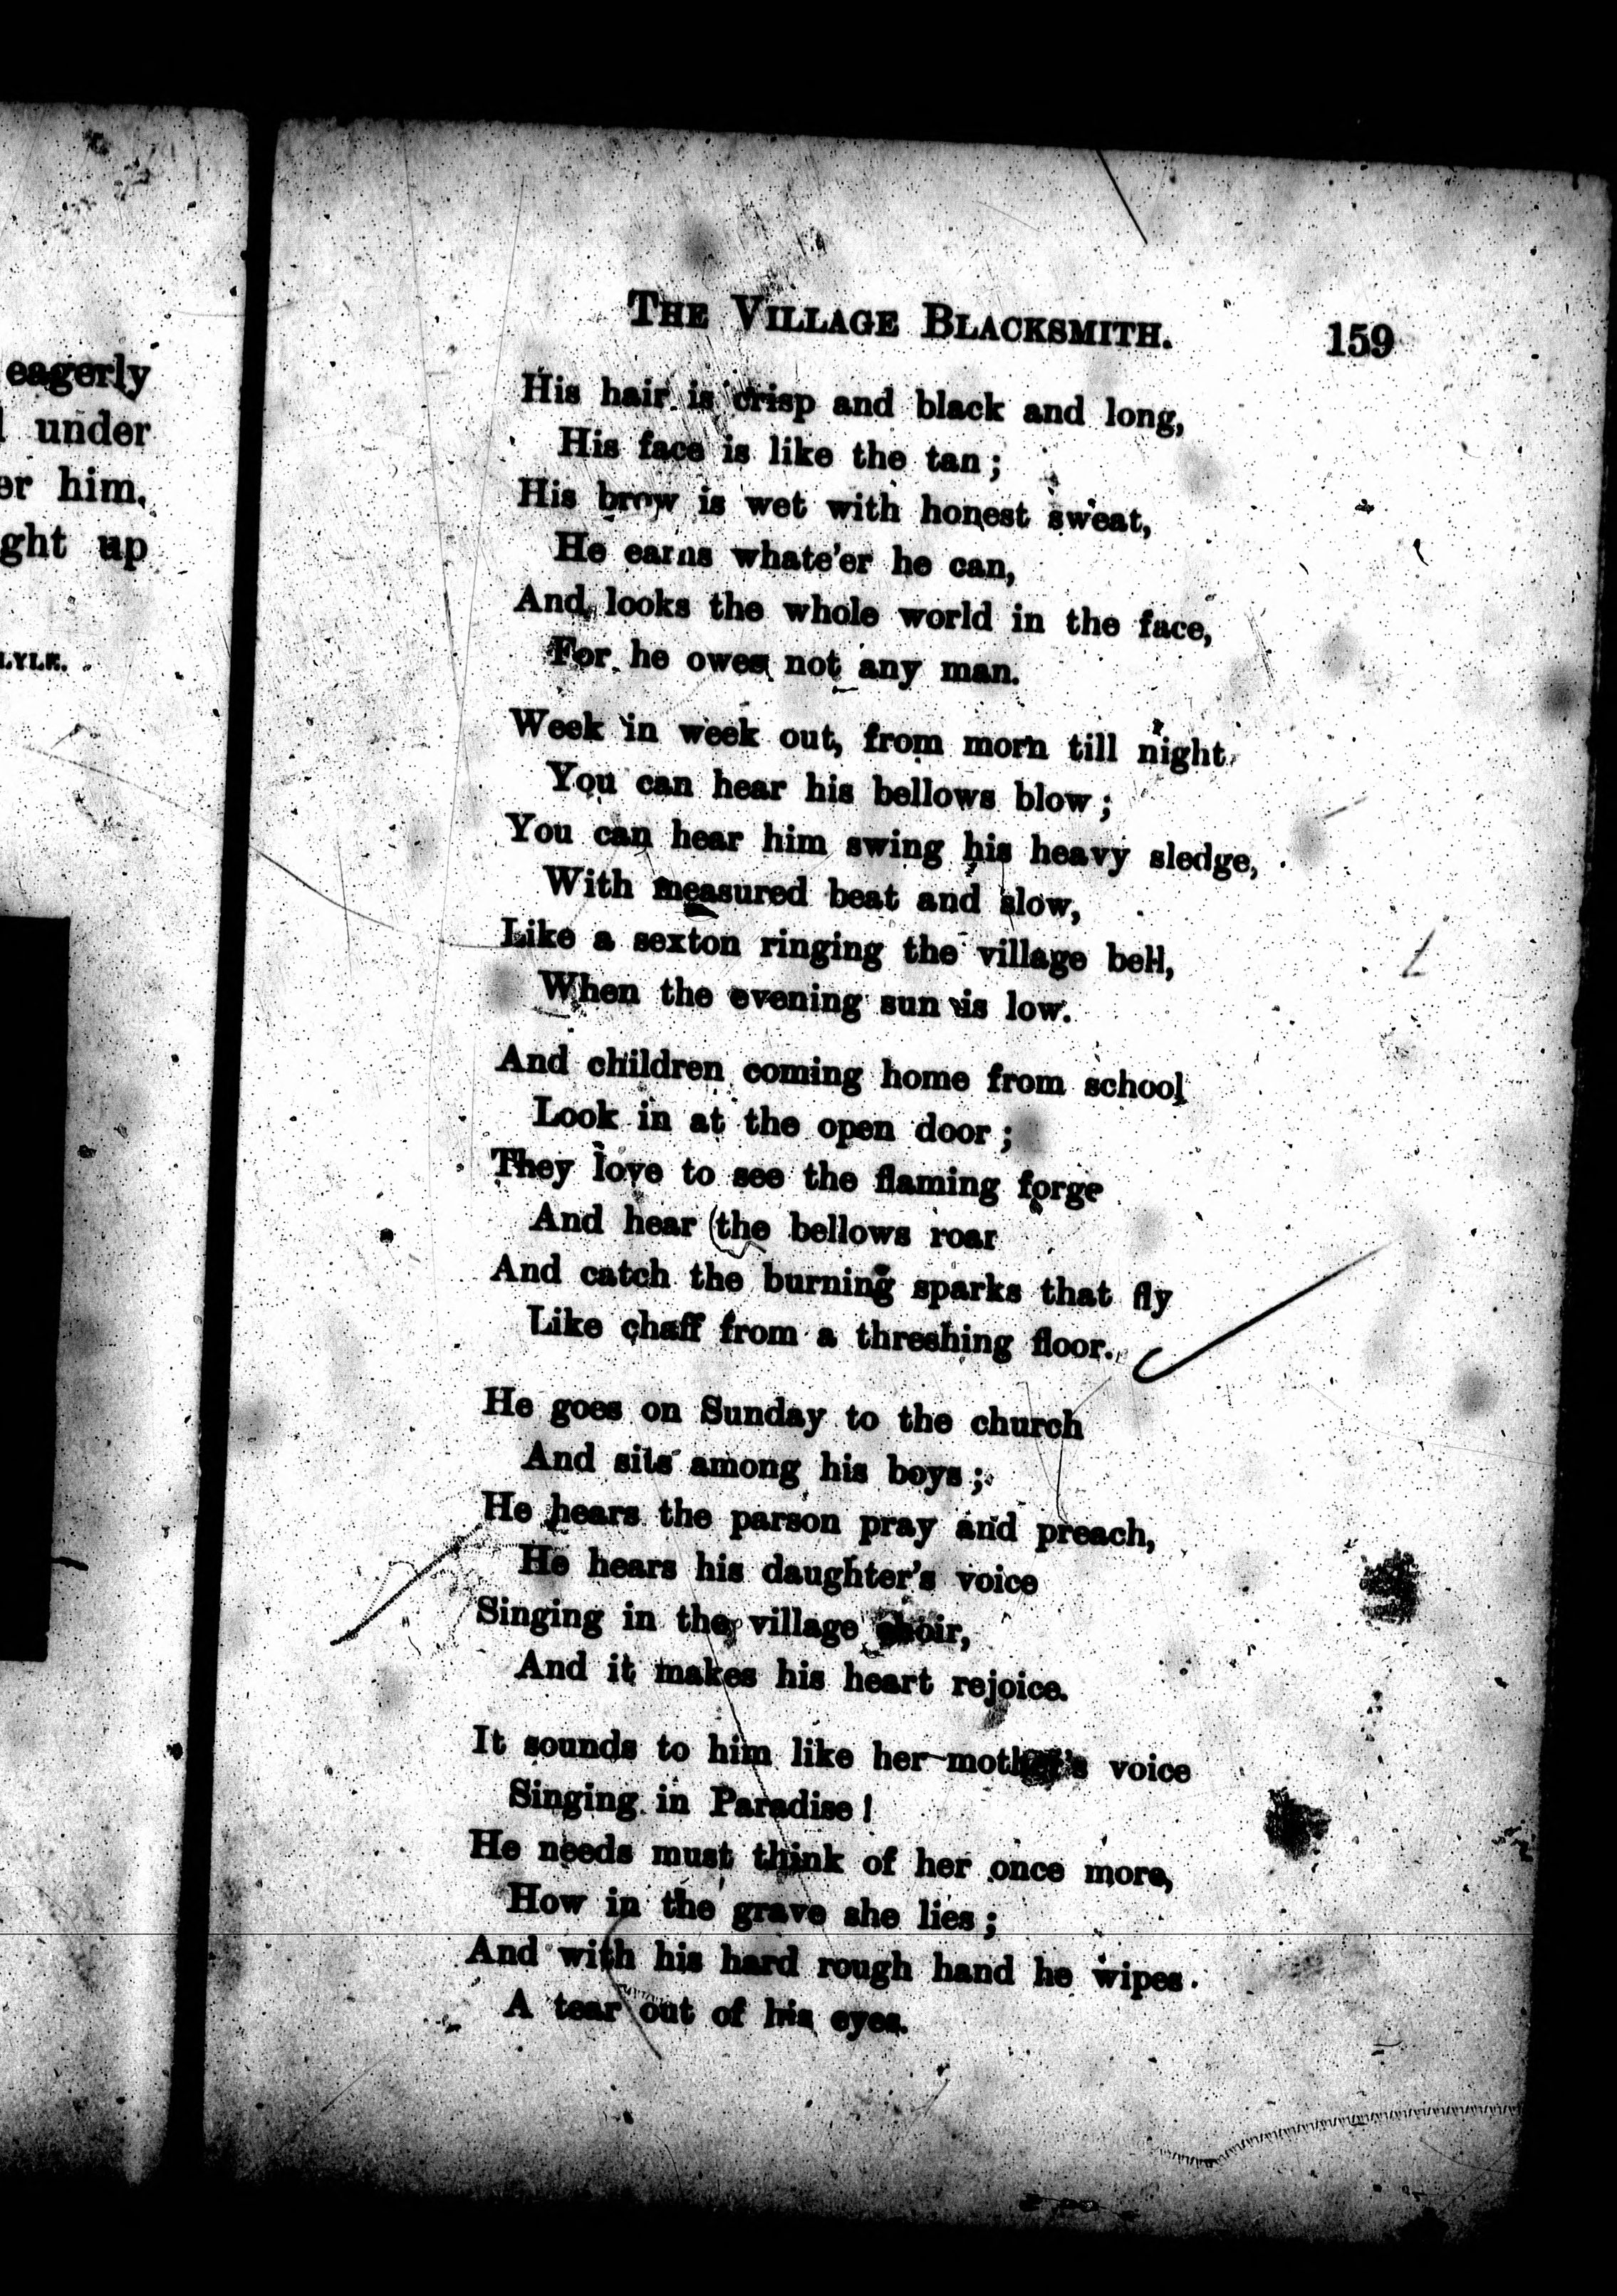 eagerly
under
er him.
ght up
LYLE.
THE VILLAGE BLACKSMITH. 159
His hair is crisp and black and long,
His face is like the tan;
His brow is wet with honest sweat,
He earns whate'er he can,
And looks the whole world in the face,
For he owes not any man.
Week in week out, from morn till night
You can hear his bellows blow;
You can hear him swing his heavy sledge,
With measured beat and slow,
Like a sexton ringing the village bell,
When the evening sun is low.
And children coming home from school
Look in at the open door;
They love to see the flaming forge
And hear the bellows roar
And catch the burning sparks that fly
Like chaff from a threshing floor.
He goes on Sunday to the church
And sits among his boys;
He hears the parson pray and preach,
He hears his daughter's voice
Singing in the village choir,
And it makes his heart rejoice.
It sounds to him like her mother's voice
Singing in Paradise!
He needs must think of her once more,
How in the grave she lies;
And with his hard rough hand he wipes
A tear out of his eyes.